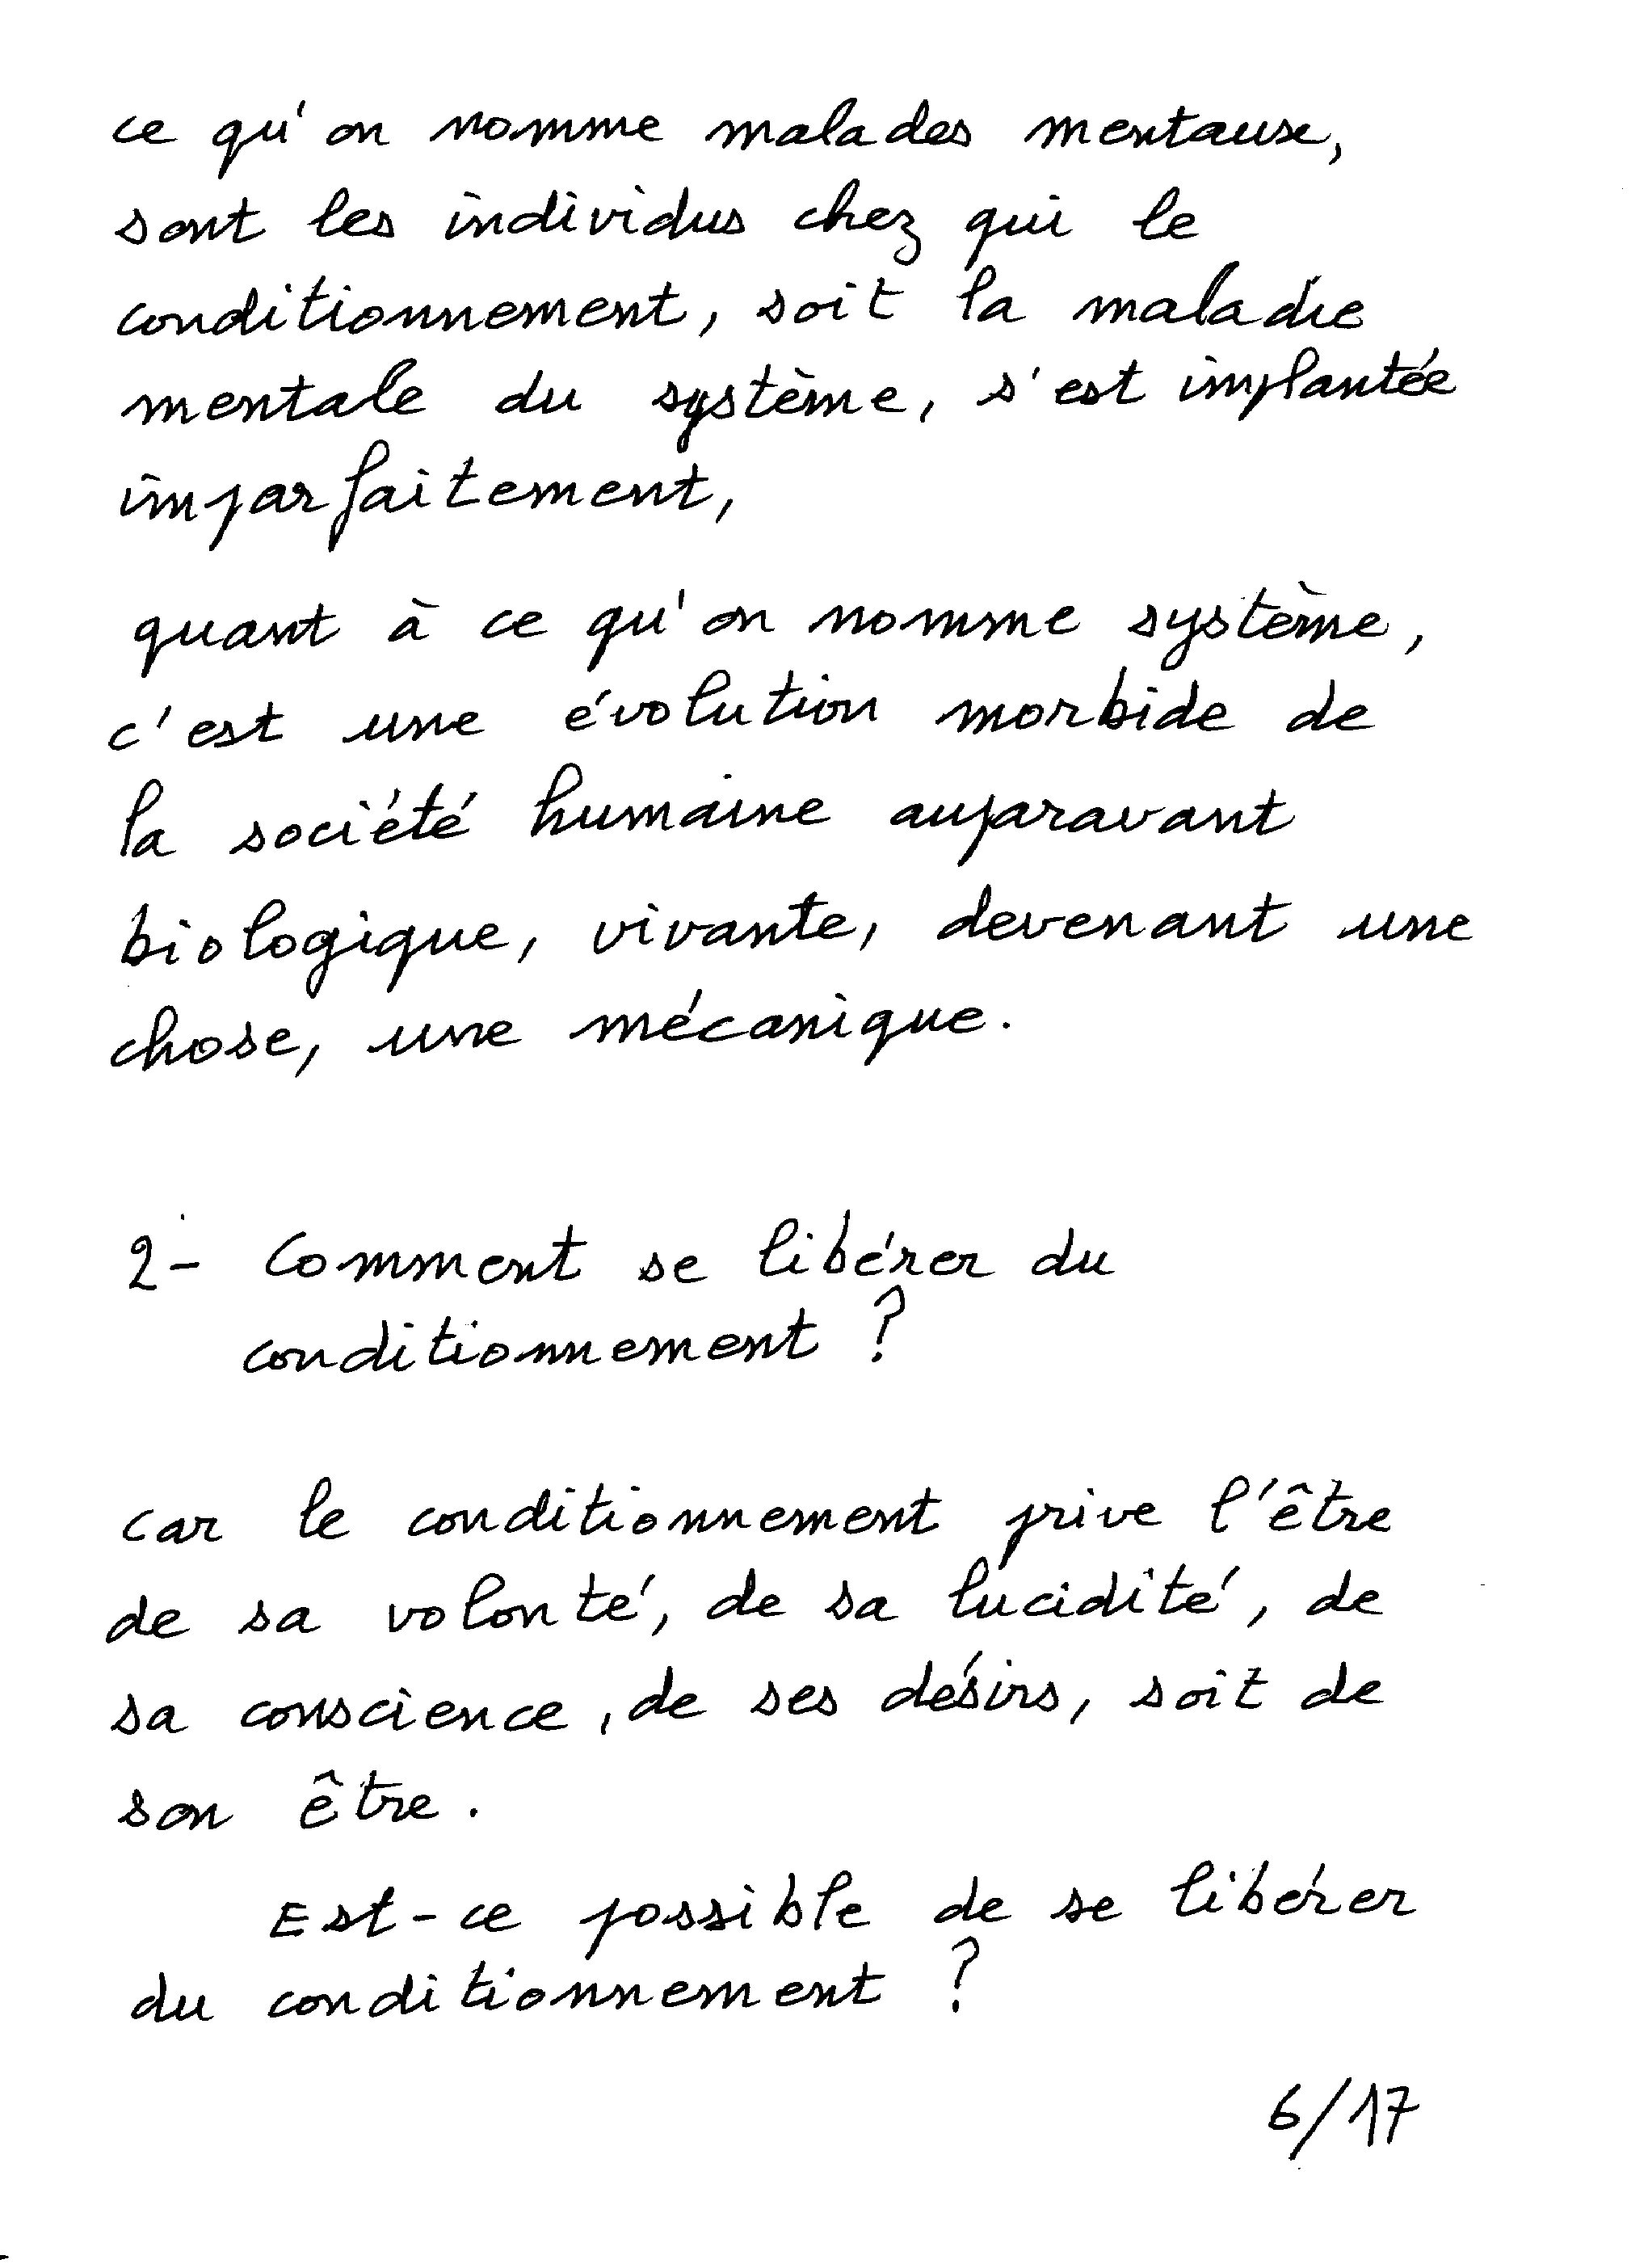 ce qu'on nomme malades mentaux,
sont les individus chez qui le
conditionnement, soit la maladie
mentale du système, s'est implantée
imparfaitement,
quant à ce qu'on nomme système,
c'est une évolution morbide de
la société humaine auparavant
biologique, vivante, devenant une
chose, une mécanique.
2- Comment se libérer du
conditionnement ?
car le conditionnement prive l'être
de sa volonté, de sa lucidité, de
sa conscience, de ses désirs, soit de
son être.
Est-ce possible de se libérer
du conditionnement ?
6/17